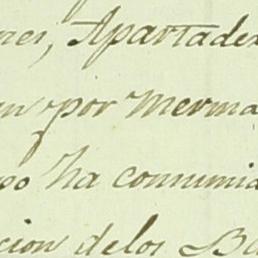 nes, Apartade
n por Merma
po ha consumid
cion delos Ba